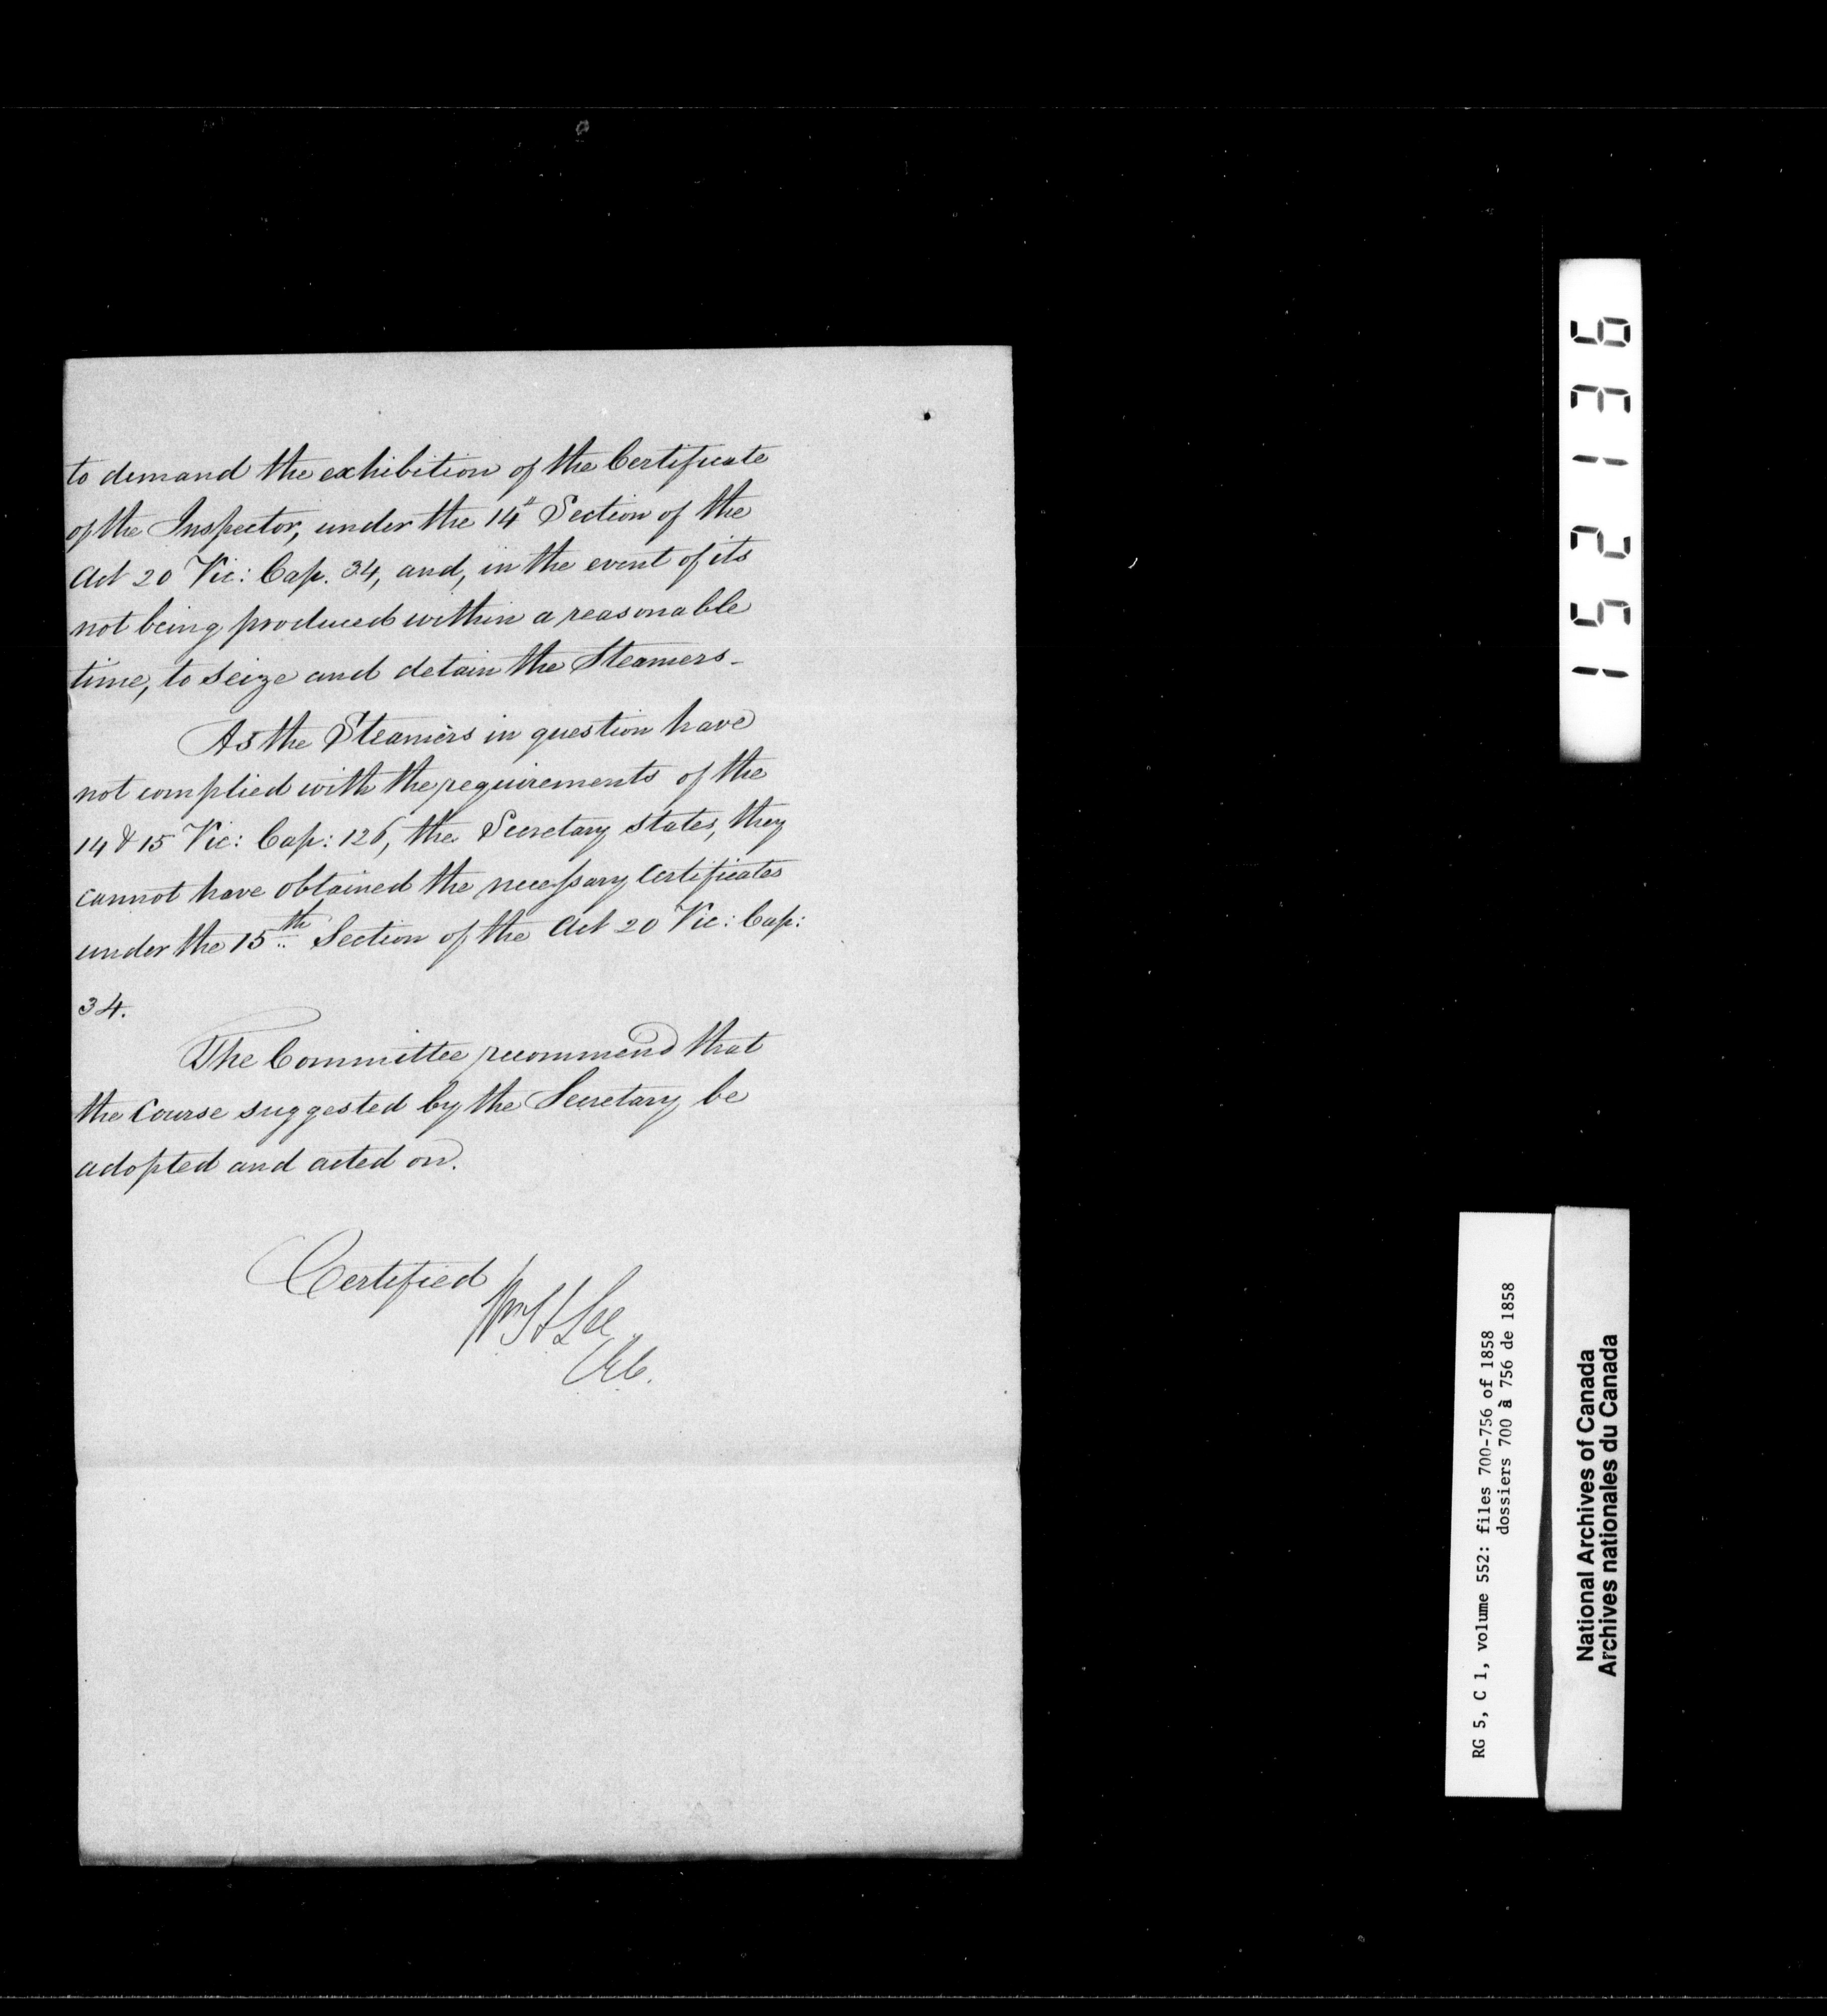 to demand the exhibition of the Certificate
of the Inspector, under the 14" Section of the
Act 20 Vic: Cap. 34, and, in the event of its
not being produced within a reasonable
time, to seize and detain the Steamers–
As the Steamers in question have
not complied with the requirements of the
14 & 15 Vic: Cap: 126, the Secretary states, they
cannot have obtained the necessary Certificates
under the 15th Section of the Act 20 Vic: Cap:
34.
The Committee recommend that
the Course suggested by the Secretary be
adopted and acted on.
Certified
Wm H Lee
152136
RG 5, C 1, volume 552: files 700-756 of 1858
dossiers 700 à 756 de 1858
National Archives of Canada
Archives nationales du Canada